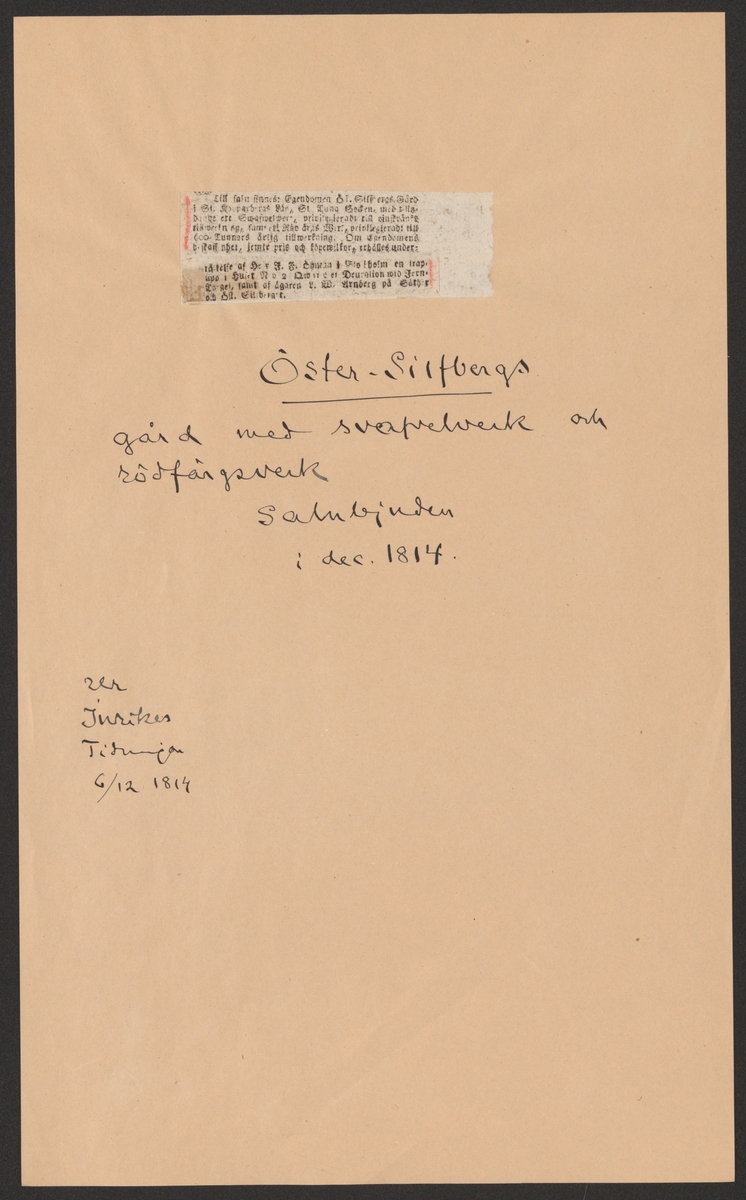 Till salu finnes: Egendomen Öst. Silfbergs Gård
i St. Kopparbergs Län, St. Tuna Socken, med
ett Swafwelwerk, privilegieradt till oinskränkt
tillwerkning, samt ett Röd färgs Werk, privilegieradt till
600 Tunnors årlig tillwerkning. Om Egendomens
beskaffenhet, jemte pris och köpewilkor, erhålles under-
rättelse af Herr J. F. i Stockholm en trap-
upp i Huset N:o 2 Qwarteret Deucalion wid Jern-
Torget, samt af ägaren L. W. Arnberg på Säther
och Öst. Silfberget.
Öster-Silfbergs
gård med svafvelverk och
rödfärgsverk
Salubjuden
i dec. 1814.
ur
Inrikes
Tidningar
6/12 1814